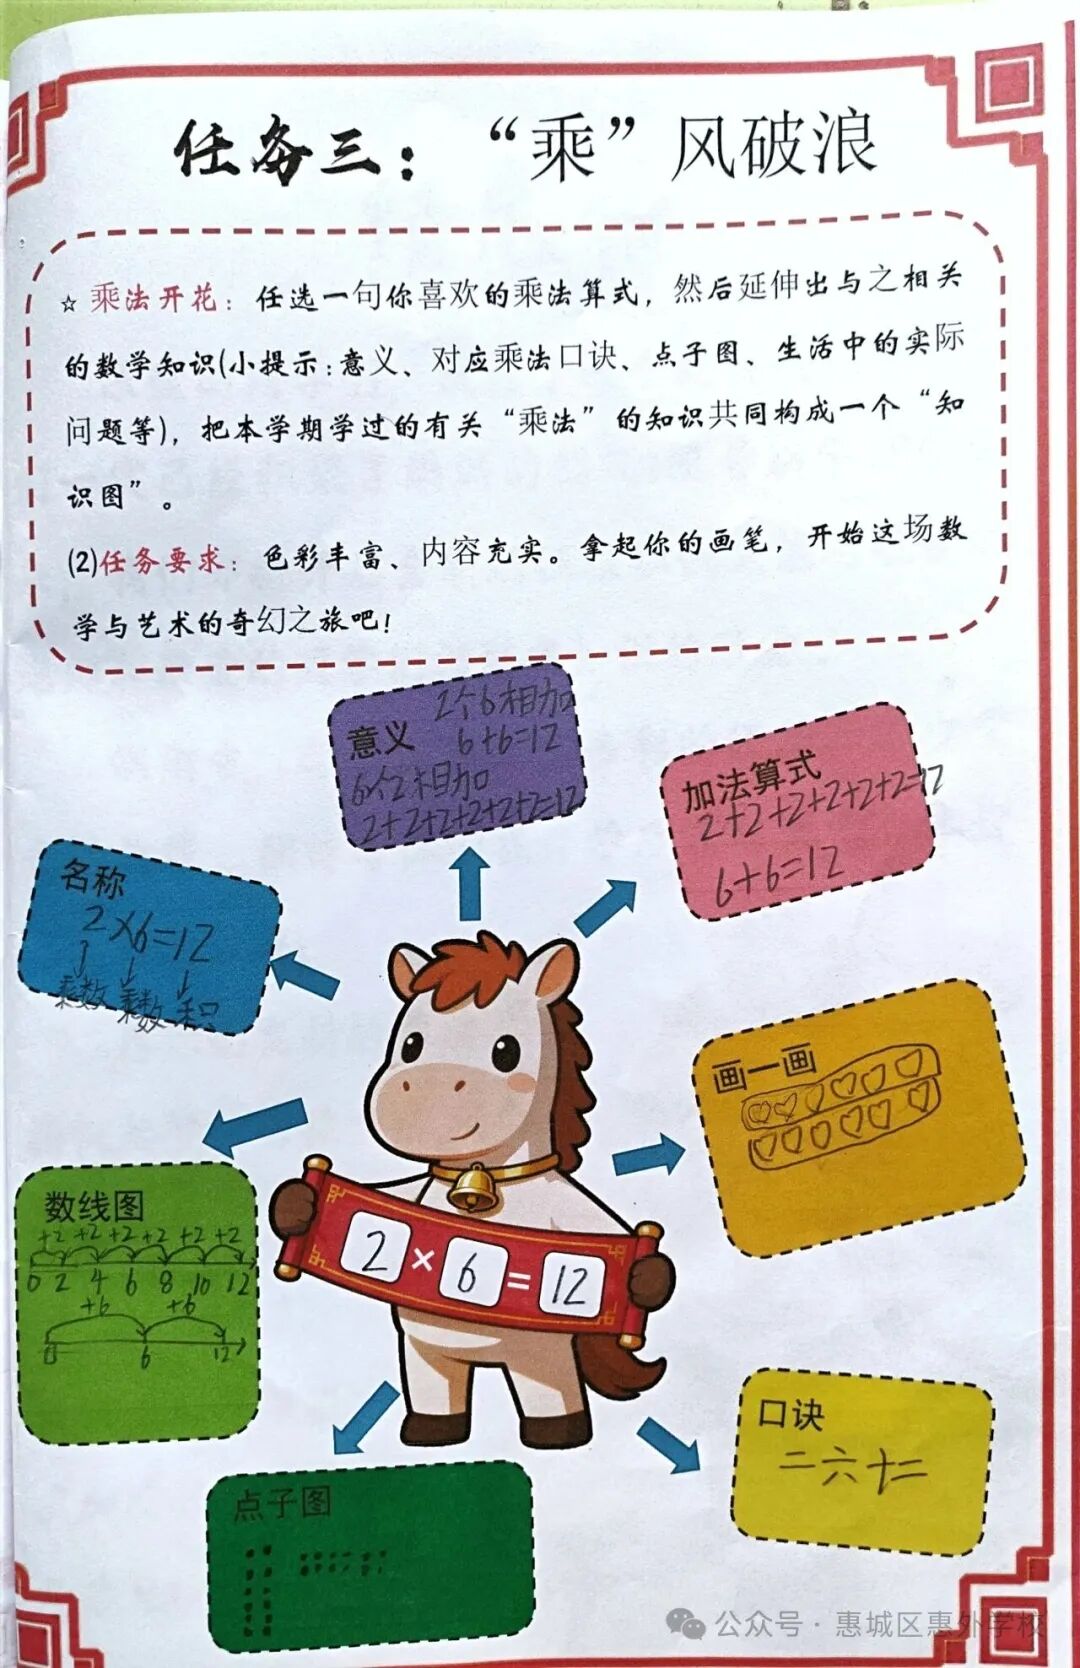 任务三：“乘”风破浪
☆ 乘法开花：任选一句你喜欢的乘法算式，然后延伸出与之相关
的数学知识(小提示:意义、对应乘法口诀、点子图、生活中的实际
问题等)，把本学期学过的有关“乘法”的知识共同构成一个“知
识图”。
(2)任务要求：色彩丰富、内容充实。拿起你的画笔，开始这场数
学与艺术的奇幻之旅吧!
意义
2个6相加
6+6=12
6个2相加
2+2+2+2+2+2=12
加法算式
2+2+2+2+2+2=12
6+6=12
名称
2×6=12
乘数 乘数 积
画一画
数线图
+2 +2 +2 +2 +2 +2
0 2 4 6 8 10 12
+6 +6
0 6 12
2×6=12
口诀
二六十二
点子图
公众号·惠城区惠外学校